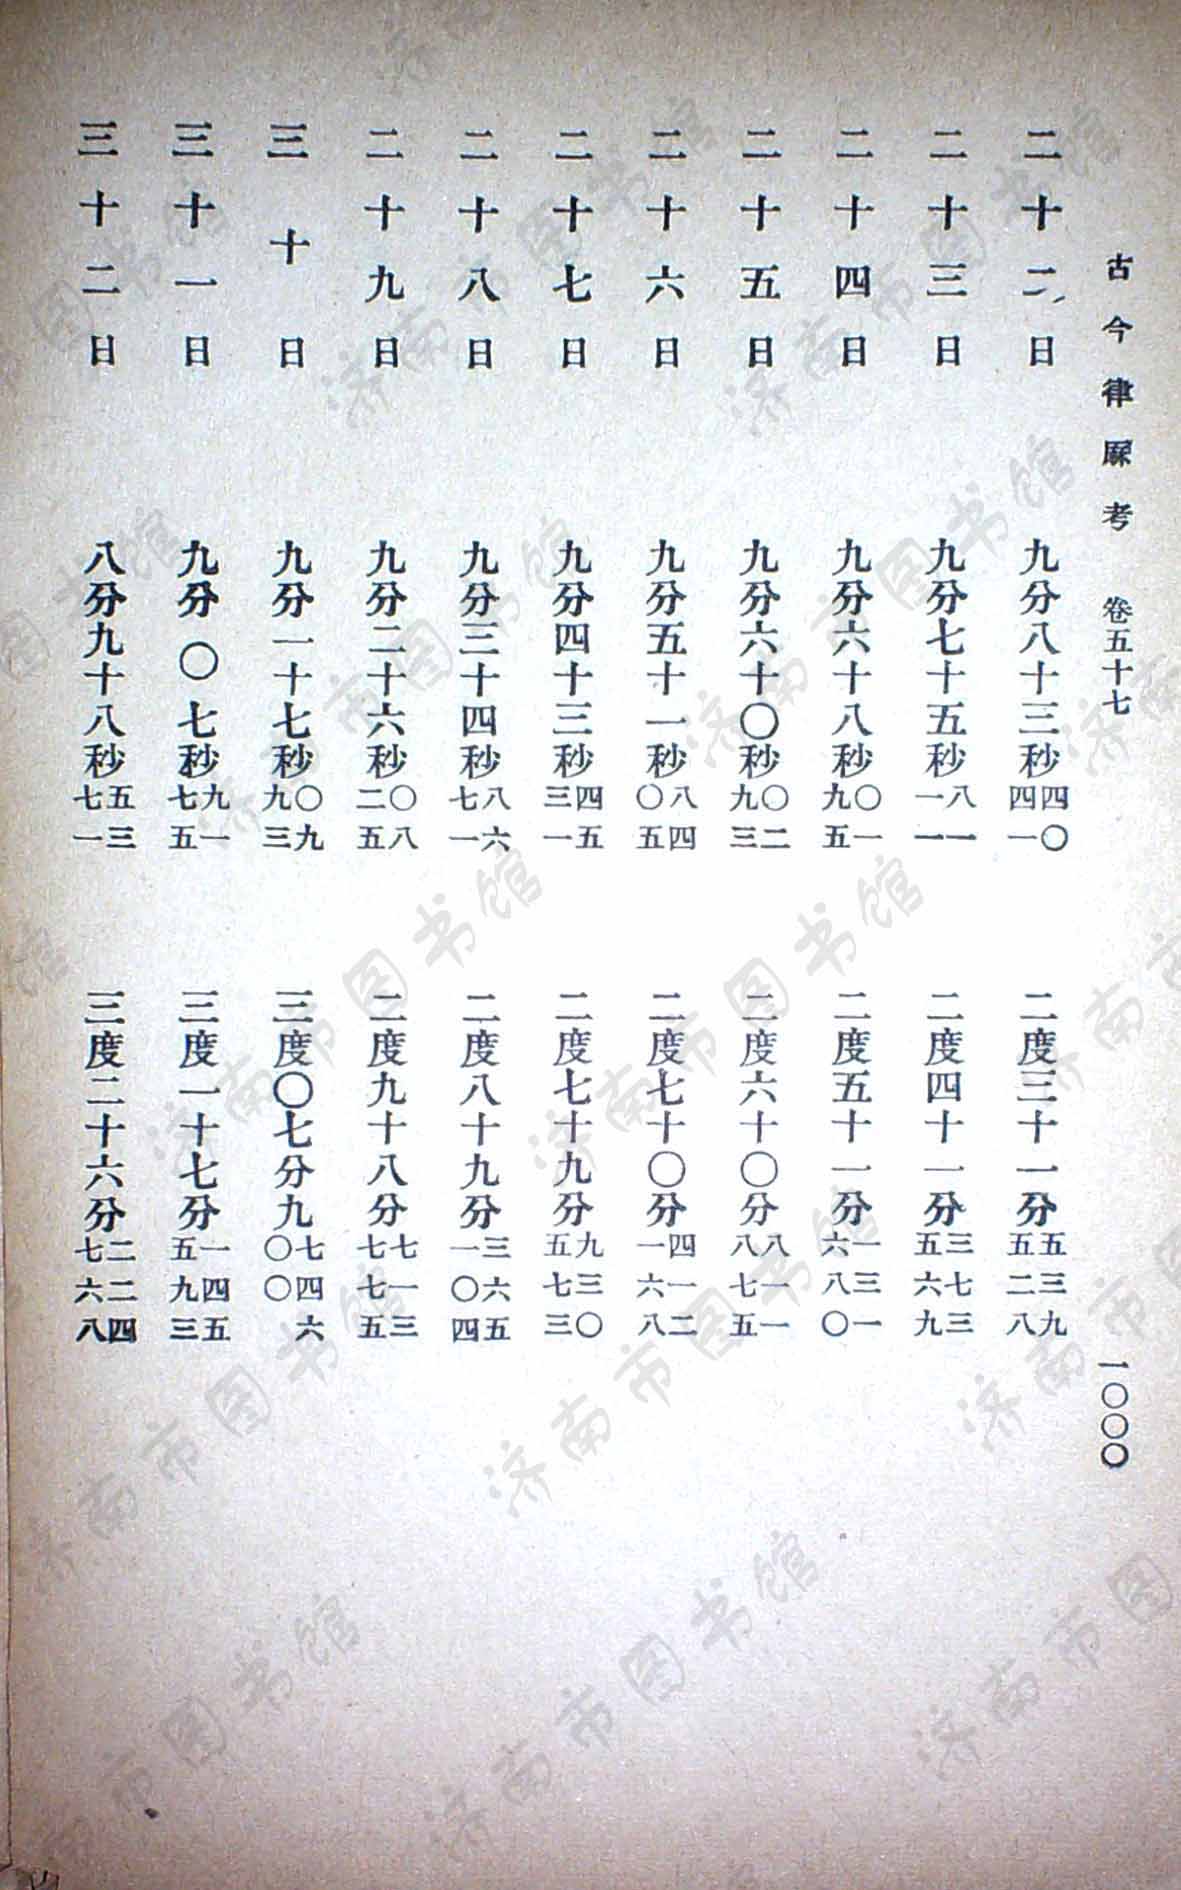 古今律厤考 卷五十七 一〇〇〇
二十二日 九分八十三秒四〇四一 二度三十一分五三九五二八
二十三日 九分七十五秒八一一一 二度四十一分三七三五六九
二十四日 九分六十八秒〇一九五 二度五十一分一三一六八〇
二十五日 九分六十〇秒〇二九三 二度六十〇分八一一八七五
二十六日 九分五十一秒八四〇五 二度七十〇分四一二一六八
二十七日 九分四十三秒四五三一 二度七十九分九三〇五七三
二十八日 九分三十四秒八六七一 二度八十九分三六五一〇四
二十九日 九分二十六秒〇八二五 二度九十八分七一三七七五
三十日 九分一十七秒〇九九三 三度〇七分九七四六〇〇
三十一日 九分〇七秒九一七五 三度一十七分一四五五九三
三十二日 八分九十八秒五三七一 三度二十六分二二四七六八
济南市图书馆